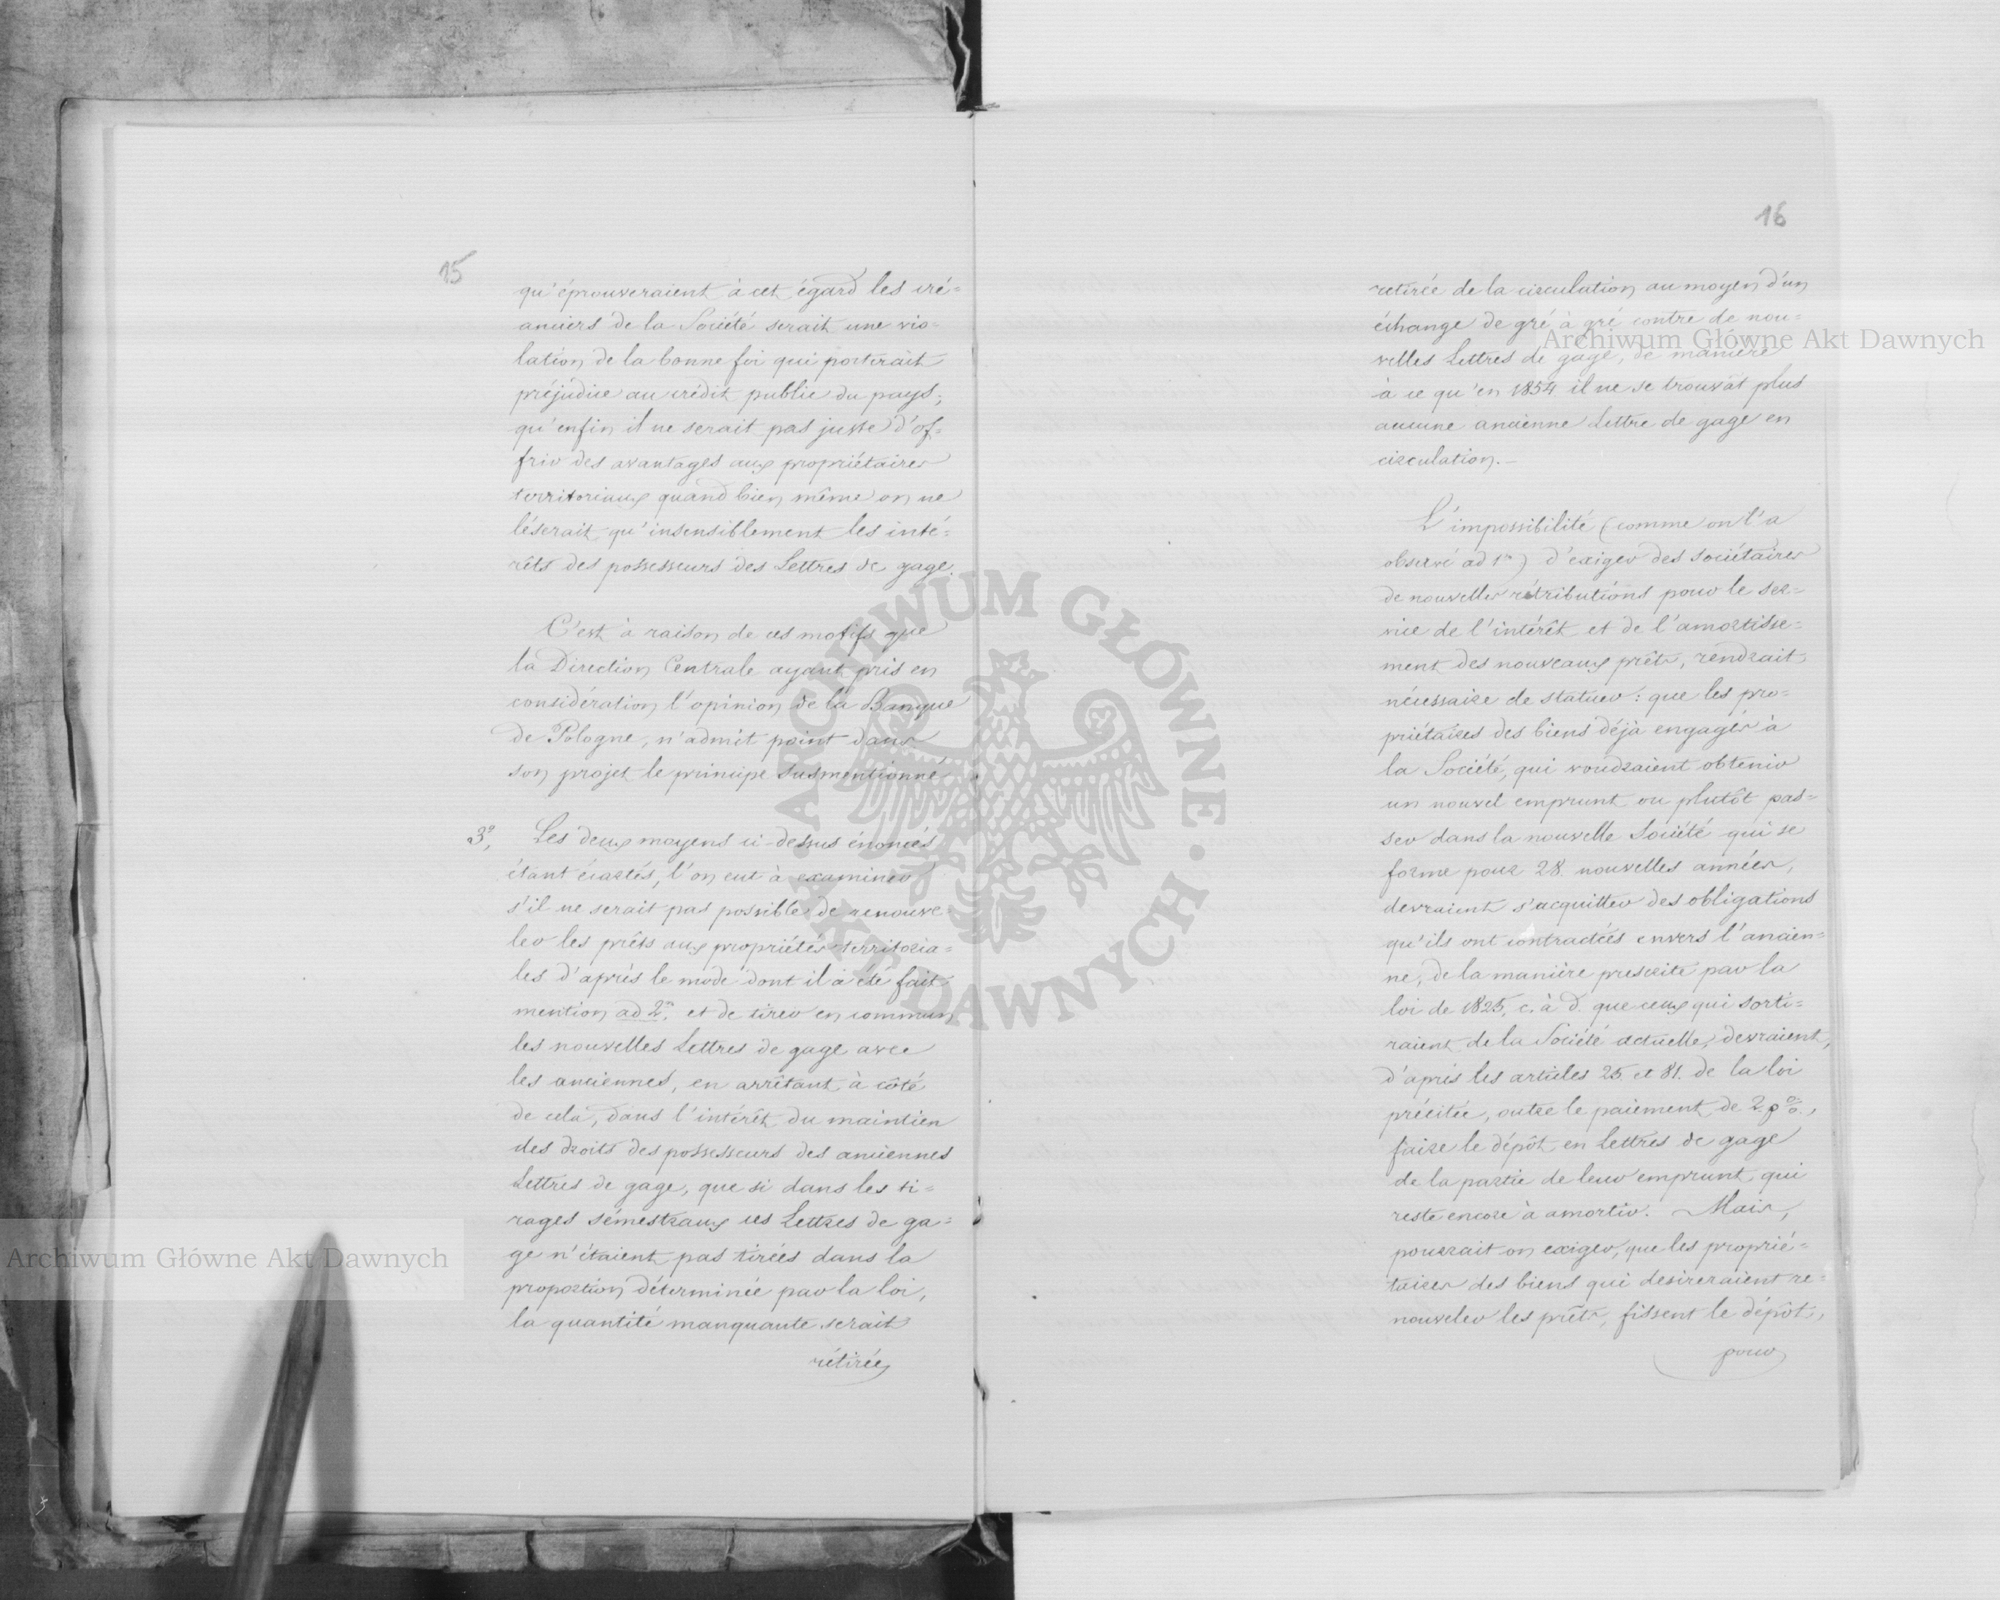 15
qu'éprouveraient à cet égard les cré=
anciers de la Société serait une vio=
lation de la bonne foi qui porterait
préjudice au crédit public du pays;
qu'enfin il ne serait pas juste d'of=
frir des avantages aux propriétaires
territoriaux quand bien même on ne
léserait qu'insensiblement les inté=
rêts des possesseurs des Lettres de gage.
C'est à raison de ces motifs que
la Direction Centrale ayant pris en
considération l'opinion de la Banque
de Pologne, n'admit point dans
son projet le principe susmentionné
3º, Les deux moyens ci-dessus énoncés
étant écartés, l'on eut à examiner
s'il ne serait pas possible de renouve=
ler les prêts aux propriétés territoria=
les d'après le mode dont il a été fait
mention ad 2º, et de tirer en commun
les nouvelles Lettres de gage avec
les anciennes, en arrêtant à côté
de cela, dans l'intérêt du maintien
des droits des possesseurs des anciennes
Lettres de gage, que si dans les ti=
rages sémestraux ces Lettres de ga=
ge n'étaient pas tirées dans la
proportion déterminée par la loi,
la quantité manquante serait
rétirée
16
retirée de la circulation au moyen d'un
échange de gré à gré contre de nou=
velles Lettres de gage, de manière
à ce qu'en 1854 il ne se trouvât plus
aucune ancienne Lettre de gage en
circulation.-
L'impossibilité (comme on l'a
observé ad 1º) d'exiger des sociétaires
de nouvelles rétributions pour le ser=
vice de l'intérêt et de l'amortisse=
ment des nouveaux prêts, rendrait
nécessaire de statuer: que les pro=
priétaires des biens déjà engagés à
la Société, qui voudraient obtenir
un nouvel emprunt ou plutôt pas=
ser dans la nouvelle Société qui se
forme pour 28 nouvelles années,
devraient s'acquitter des obligations
qu'ils ont contractées envers l'ancien=
ne, de la manière prescrite par la
loi de 1825, c. à d. que ceux qui sorti=
raient de la Société actuelle, devraient,
d'après les articles 25 et 81. de la loi
précitée, outre le paiement de 2 p %,
faire le dépôt en lettres de gage
de la partie de leur emprunt qui
reste encore à amortir. Mais,
pourrait on exiger, que les proprié=
taires des biens qui desireraient re=
nouveler les prêts, fissent le dépôt,
pour
Archiwum Główne Akt Dawnych
Archiwum Główne Akt Dawnych
ARCHIWUM GŁÓWNE AKT DAWNYCH